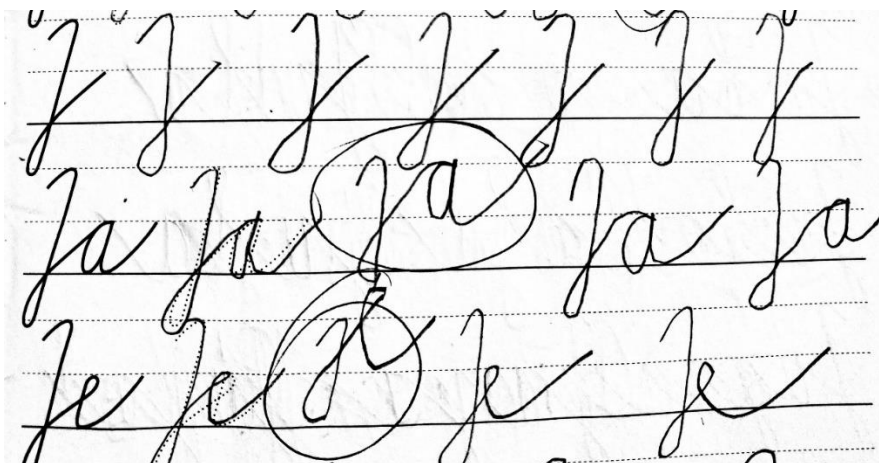 J J J J J J J
Ja Ja Ja Ja Ja
Je Je Je Je Je